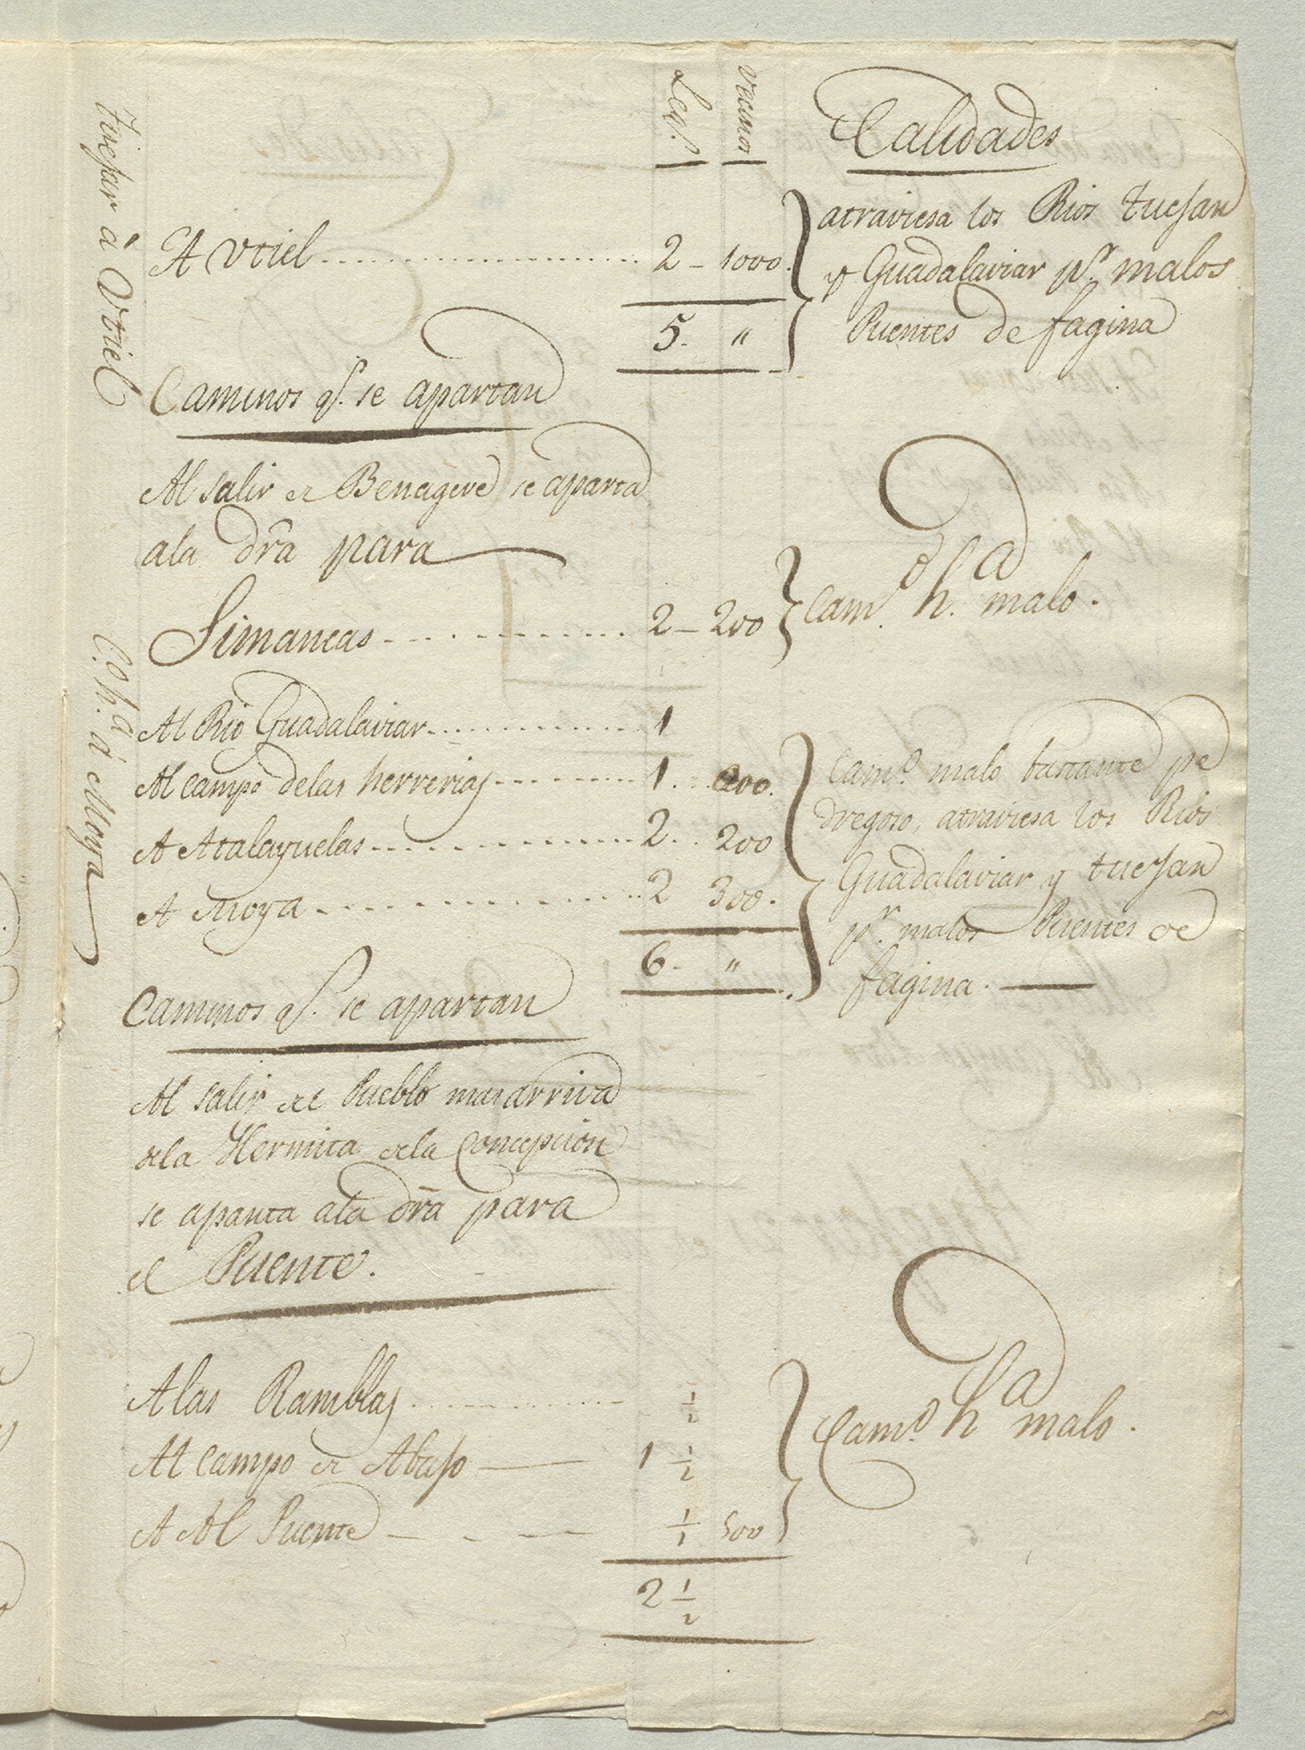 Leg.s vecinos Calidades
Tuejar á Vtiel
A Vtiel 2 - 1000.
5. "
atraviesa los Rios tuejar
y Guadalaviar pr. malos
Puentes de fagina
Caminos q.e se apartan
Al salir de Benageve se aparta
ala dra para
Simancas 2 - 200
Cam.o de h.a malo.
C.o h.a á Moya
Al Rio Guadalaviar 1
Al campo delas herrerias 1. 200.
A Atalayuelas 2. 200
A Moya 2 300.
6. "
Cam.o malo bastante pe
dregoso, atraviesa los Rios
Guadalaviar y tuejar
pr. malos Puentes de
fagina.
Caminos q.e se apartan
Al salir del Pueblo mas arriva
dela Hermita dela Concepcion
se aparta ala dra para
el Puente.
Alas Ramblas 1/2
Al Campo de Abajo 1 1/2
A Al Puente 1/1 500
2 1/2
Cam.o h.a malo.